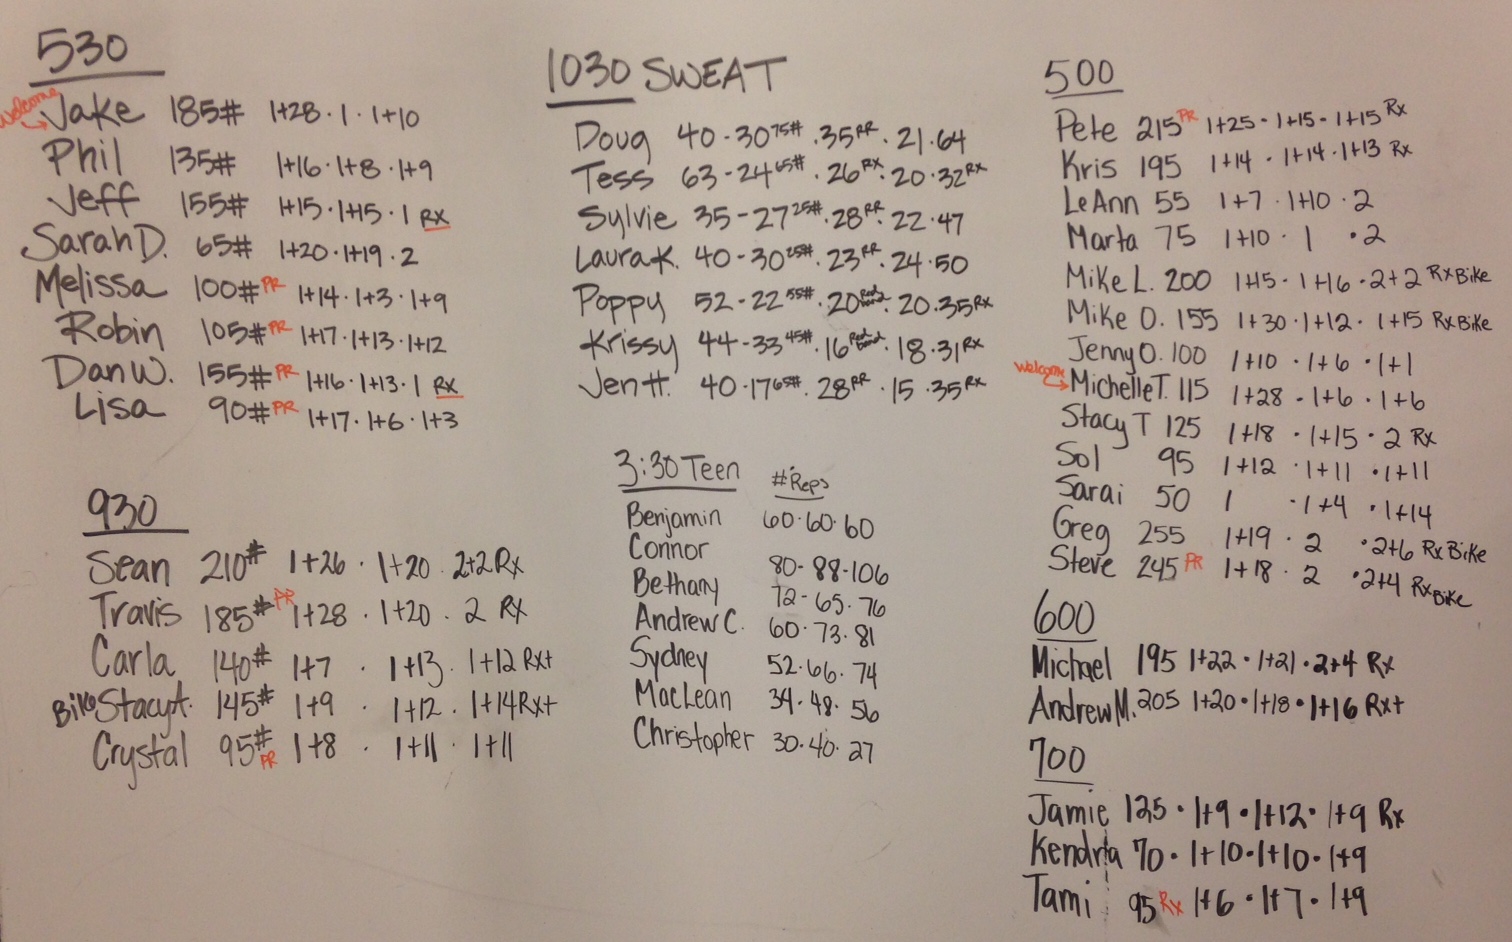 530
Welcome
Jake 185# 1+28 · 1 · 1+10
Phil 135# 1+16 · 1+8 · 1+9
Jeff 155# 1+15 · 1+15 · 1 RX
Sarah D. 65# 1+20 · 1+19 · 2
Melissa 100# PR 1+14 · 1+3 · 1+9
Robin 105# PR 1+17 · 1+13 · 1+12
Dan W. 155# PR 1+16 · 1+13 · 1 RX
Lisa 90# PR 1+17 · 1+6 · 1+3
930
Sean 210# 1+26 · 1+20 · 2+2 Rx
Travis 185# PR 1+28 · 1+20 · 2 RX
Carla 140# 1+7 · 1+13 · 1+12 Rx+
Bike Stacy A. 145# 1+9 · 1+12 · 1+14 Rx+
Crystal 95# PR 1+8 · 1+11 · 1+11
1030 SWEAT
Doug 40 - 30 75# · 35 RR · 21 · 64
Tess 63 - 24 65# · 26 RX · 20 · 32 RX
Sylvie 35 - 27 25# · 28 RR · 22 · 47
Laura K. 40 - 30 25# · 23 RR · 24 · 50
Poppy 52 - 22 55# · 20 Red Band · 20 · 35 RX
Krissy 44 - 33 45# · 16 Red Band · 18 · 31 RX
Jen H. 40 · 17 65# · 28 RR · 15 · 35 RX
3:30 Teen # Reps
Benjamin 60 · 60 · 60
Connor 80 - 88 - 106
Bethany 72 - 65 · 76
Andrew C. 60 · 73 · 81
Sydney 52 · 66 · 74
MacLean 34 · 48 · 56
Christopher 30 · 40 · 27
500
Pete 215 PR 1+25 - 1+15 - 1+15 Rx
Kris 195 1+14 · 1+14 · 1+13 Rx
LeAnn 55 1+7 · 1+10 · 2
Marta 75 1+10 · 1 · 2
Mike L. 200 1+15 · 1+16 · 2+2 RX Bike
Mike O. 155 1+30 · 1+12 · 1+15 RX Bike
Jenny O. 100 1+10 · 1+6 · 1+1
Welcome
Michelle T. 115 1+28 - 1+6 · 1+6
Stacy T 125 1+18 · 1+15 · 2 Rx
Sol 95 1+12 · 1+11 · 1+11
Sarai 50 1 · 1+4 · 1+14
Greg 255 1+19 · 2 · 2+6 Rx Bike
Steve 245 PR 1+18 · 2 · 2+4 Rx Bike
600
Michael 195 1+22 · 1+21 · 2+4 Rx
Andrew M. 205 1+20 · 1+18 · 1+16 Rx+
700
Jamie 125 · 1+9 · 1+12 · 1+9 Rx
Kendra 70 · 1+10 · 1+10 · 1+9
Tami 95 Rx 1+6 · 1+7 · 1+9